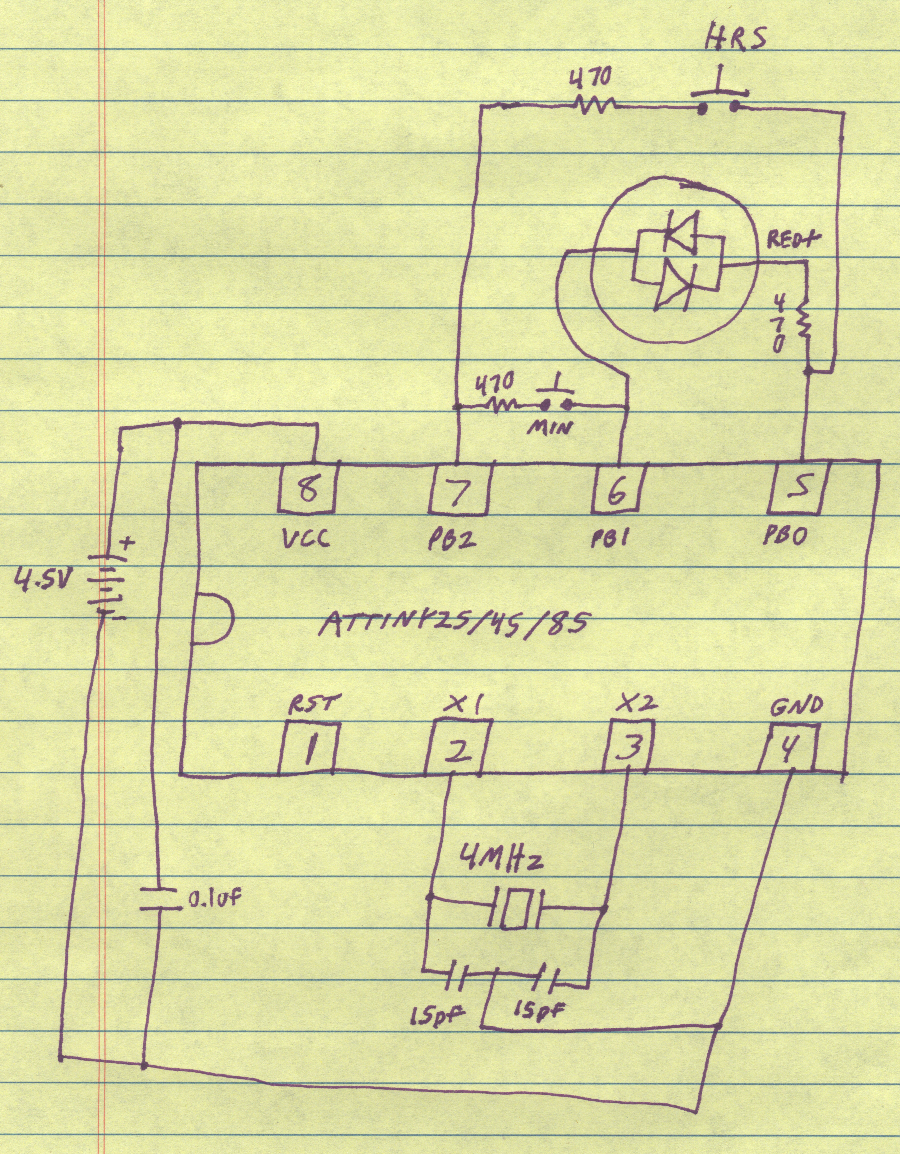 HRS
470
RED+
470
470
MIN
8 7 6 5
VCC PB2 PB1 PB0
+
4.5V
-
ATTINY25/45/85
RST X1 X2 GND
1 2 3 4
4MHz
0.1uF
15pF 15pF